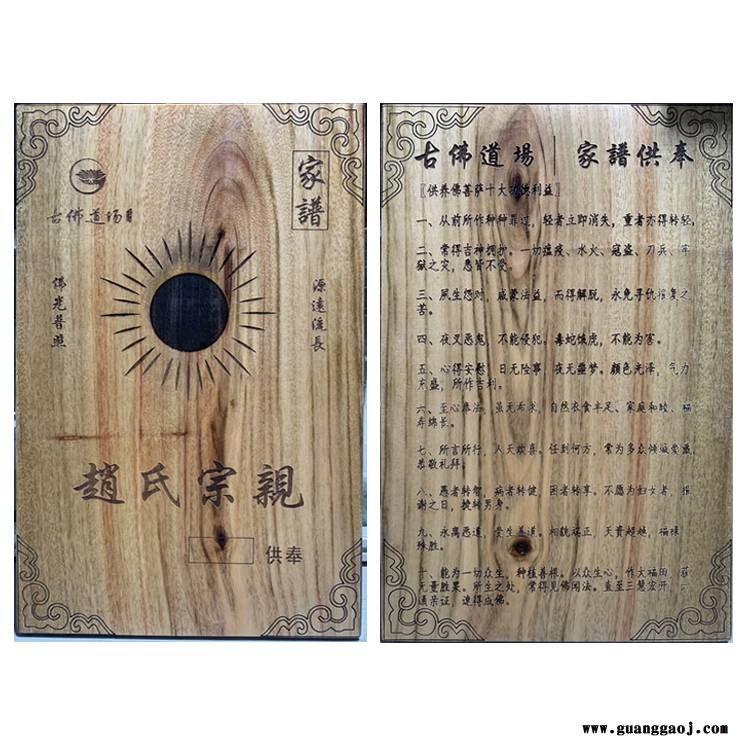 家譜
古佛道场
佛光普照
源遠流長
趙氏宗親
供奉
古佛道場 家譜供奉
〖供养佛菩萨十大功德利益〗
一、从前所作种种罪过，轻者立即消失，重者亦得转轻。
二、常得吉神拥护。一切瘟疫、水火、寇盗、刀兵、牢
狱之灾，悉皆不受。
三、夙生怨对，咸蒙法益，而得解脱，永免寻仇报复之
苦。
四、夜叉恶鬼，不能侵犯。毒蛇饿虎，不能为害。
五、心得安慰，日无险事，夜无噩梦。颜色光泽，气力
充盛，所作吉利。
六、至心奉法，虽无希求，自然衣食丰足、家庭和睦、福
寿绵长。
七、所言所行，人天欢喜。任到何方，常为多众倾诚爱戴，
恭敬礼拜。
八、愚者转智，病者转健，困者转亨。不愿为妇女者，报
谢之日，捷转男身。
九、永离恶道，受生善道。相貌端正，天資超越，福禄
殊胜。
十、能为一切众生，种植善根。以众生心，作大福田，获
无量胜果。所生之处，常得见佛闻法。直至三慧宏开，
通亲证，速得成佛。
www.guanggaoj.com